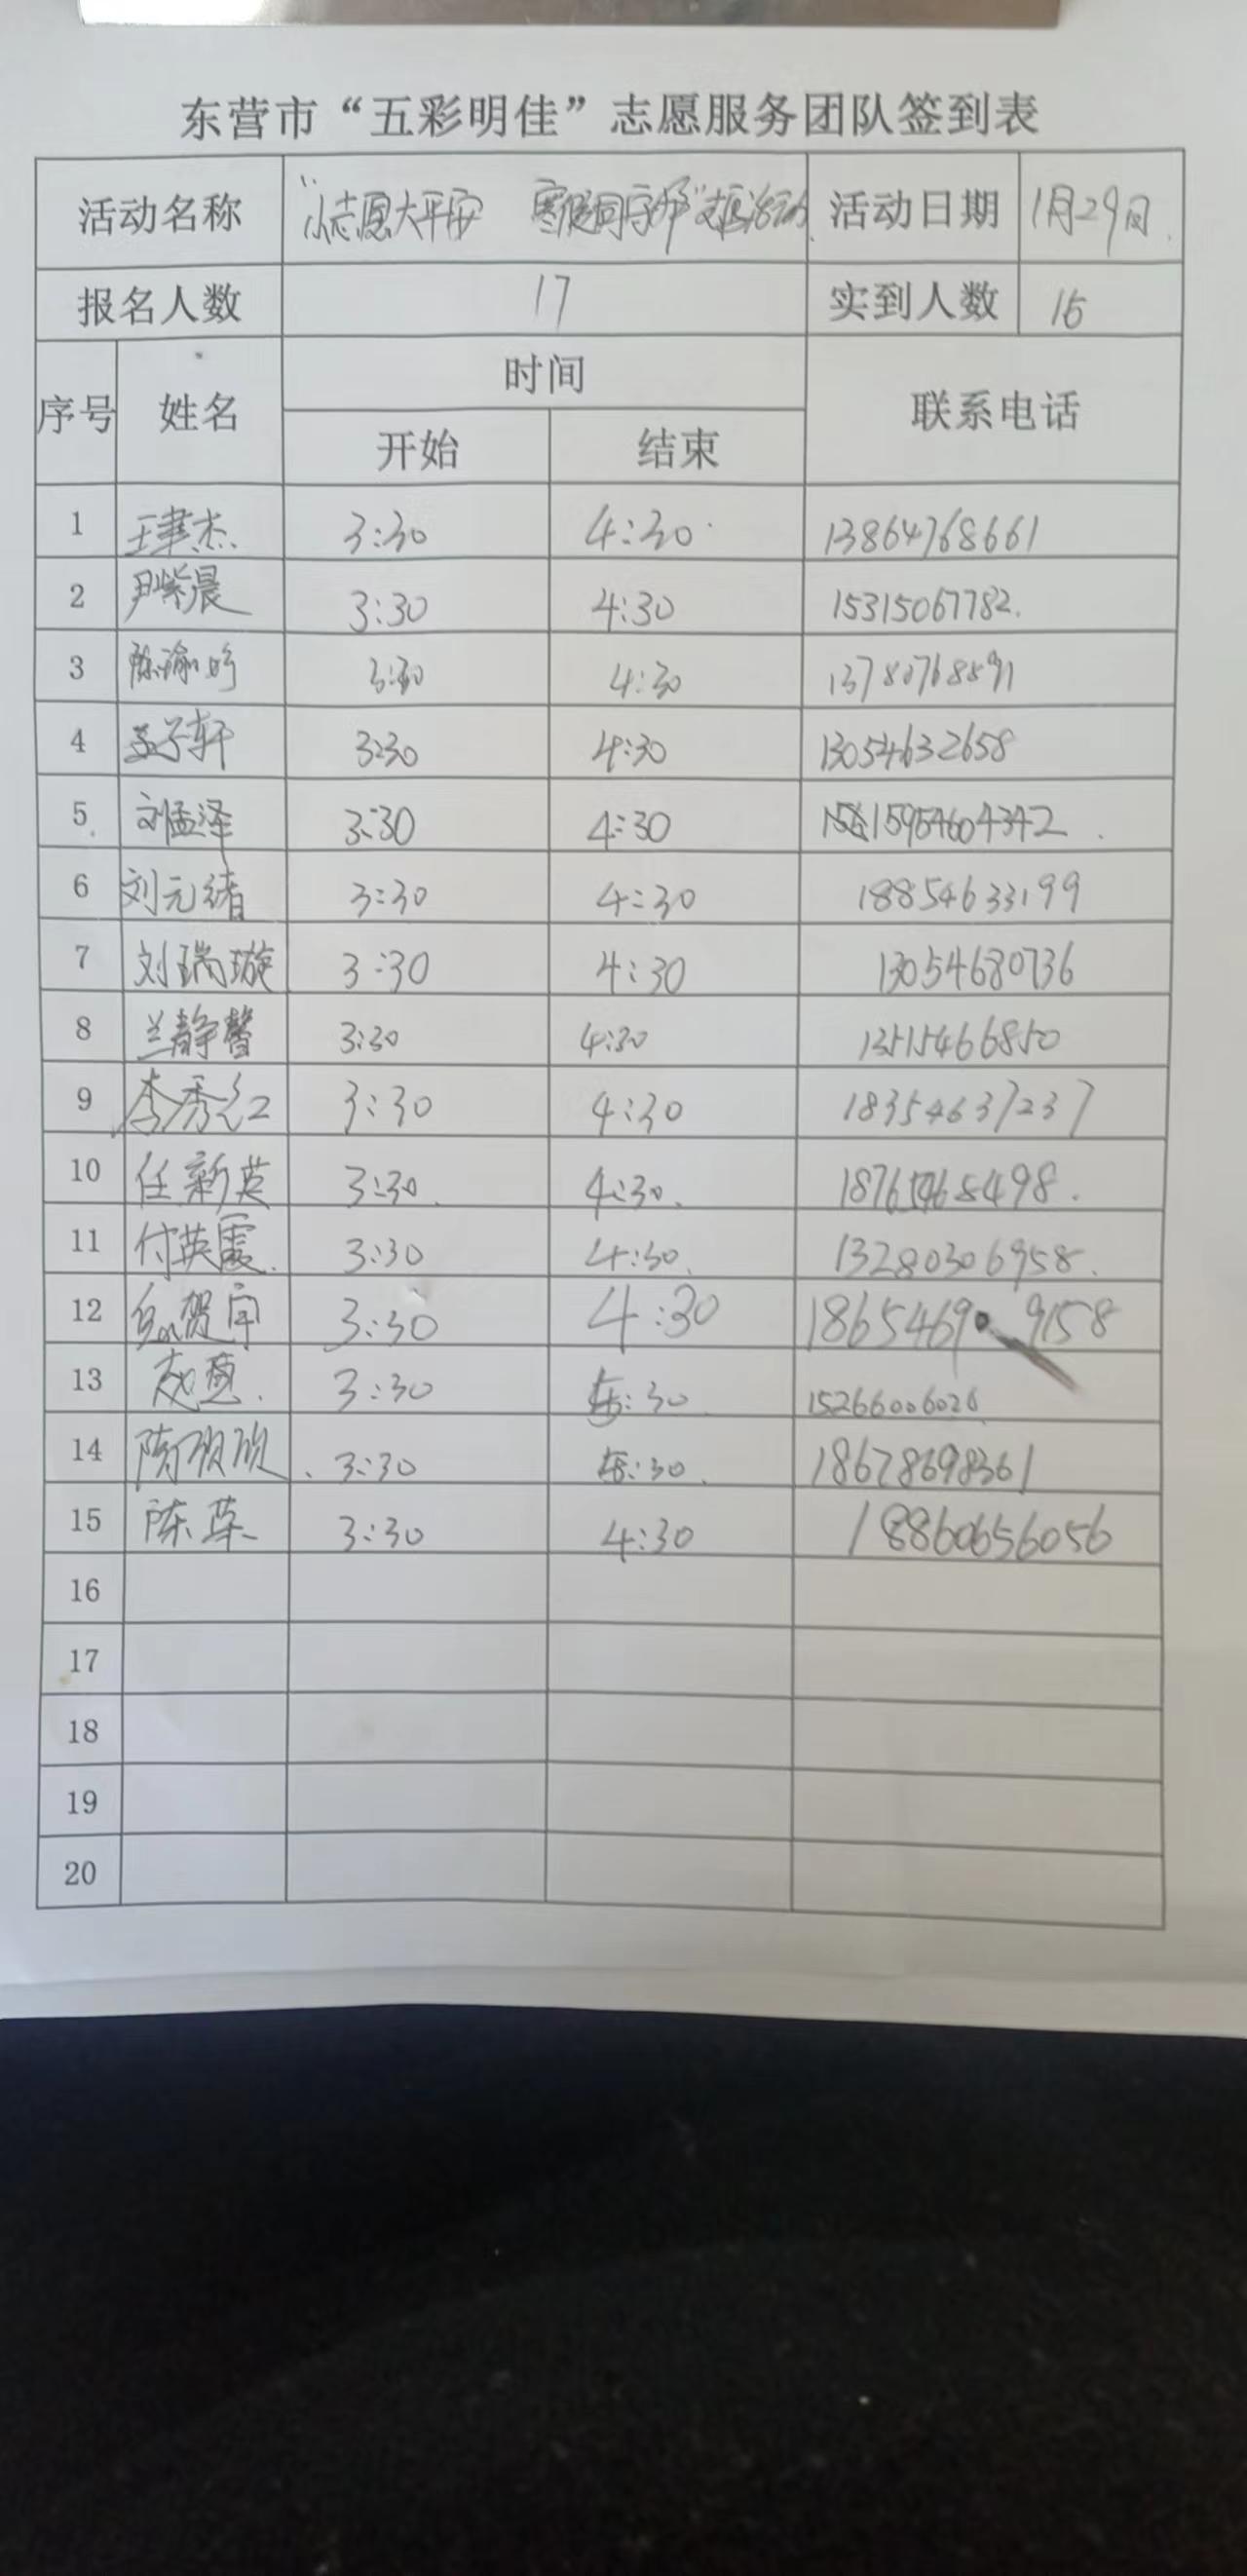 东营市“五彩明佳”志愿服务团队签到表
活动名称 “小志愿大平安 寒假同守护”志愿活动 活动日期 1月29日.
报名人数 17 实到人数 15
序号 姓名 时间 联系电话
开始 结束
1 王聿杰 3:30 4:30 13864768661
2 尹紫晨 3:30 4:30 15315067782.
3 陈瑜 3:30 4:30 13780768891
4 孟子轩 3:30 4:30 13054632658
5 刘孟泽 3:30 4:30 15954604342
6 刘元绪 3:30 4:30 18854633199
7 刘瑞璇 3:30 4:30 13054680736
8 兰静馨 3:30 4:30 13515466850
9 李秀红 3:30 4:30 18354637237
10 任新英 3:30 4:30 18765468498.
11 付英霞 3:30 4:30 13280306958.
12 贺 3:30 4:30 1865469 9158
13 3:30 :30 15266006026
14 隋 欣 3:30 :30 18678698361
15 陈 3:30 4:30 18860656056
16
17
18
19
20